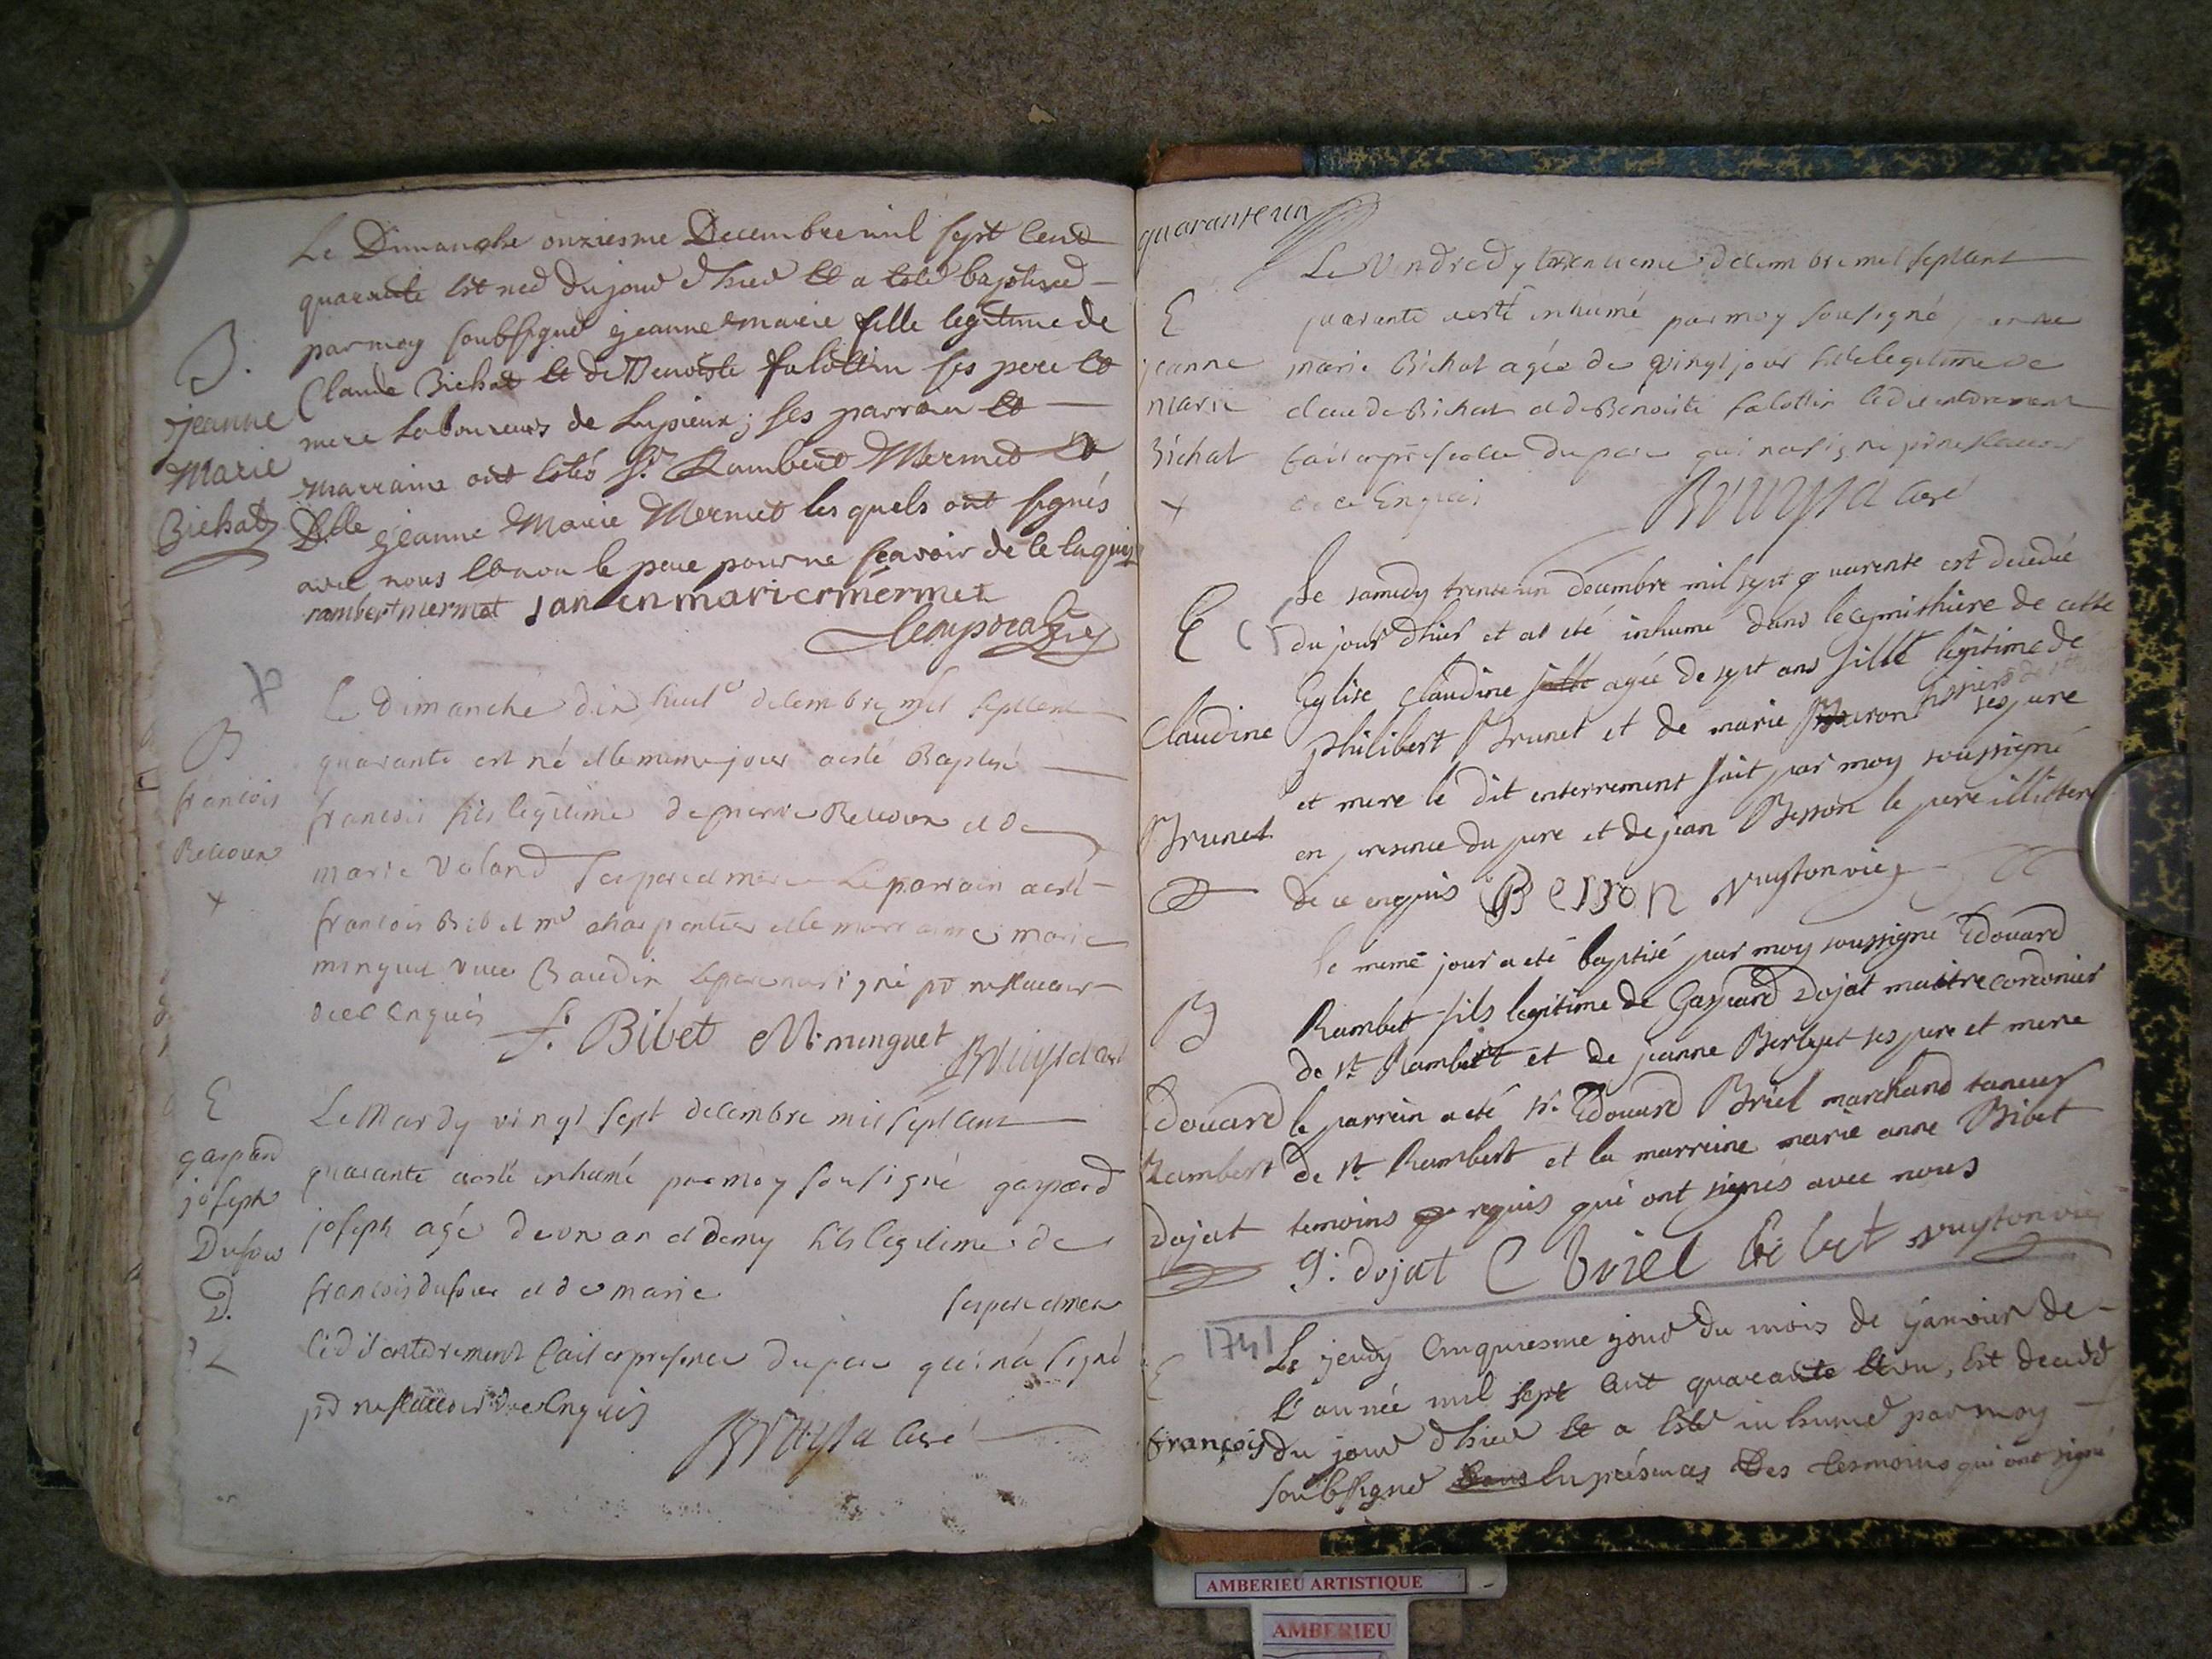 Le Dimanche onziesme Decembre mil sept Cent
quarante Est neé Du jour d'hier Et a Esté baptiseé
par moy soubsigné jeanne marie fille legitime de
Claude Bichat Et de Benoiste falottin ses pere Et
mere Laboureurs de Lupieux; ses parrain Et
marraine ont Estés Sr. Rambert Mermet Et
Dlle jeanne Marie Mermet les quels ont signés
avec nous Et non le pere pour ne sçavoir de ce Enquis
rambert mermet
B.
jeanne
Marie
Bichat
Le dimanche dix huit decembre mil sept cent
quarante est né et le meme jour a esté Baptisé
francois fils legitime de pierre et de
marie ses pere et mere Le parrain a esté
francois Bibet me charpentier et la marraine marie
minguet Baudin le pere n'a signé pr ne scavoir
de ce Enquis f. Bibet M. minguet
B
francois
+
Le Mardy vingt sept decembre mil sept cent
quarante a esté inhumé par moy sousigné gaspard
joseph agé de un an et demy fils legitime de
francois dufour et de marie ses pere et mere
le dit enterrement fait en presence du pere qui n'a signé
pr ne scavoir de ce Enquis
curé
E
gaspard
joseph
Dufour
quarante un
Le Vendredy trentieme decembre mil sept cent
quarante a esté inhumé par moy sousigné jeanne
marie Bichat agée de vingt jour fille legitime de
claude Bichat et de Benoite falottin le dit enterrement
fait en presence du pere qui n'a signé pr ne scavoir
de ce Enquis
curé
E
jeanne
marie
Bichat
+
Le samedy trente un decembre mil sept quarente est decedée
du jour d'hier et at eté inhumé dans le cymithiere de cette
Eglise Claudine fille agée de sept ans fille legitime de
philibert Brunet et de marie ses pere
et mere le dit enterrement fait par moy soussigné
en presence du pere et de jean Besson le pere illitteré
de ce enquis Besson
E
Claudine
Brunet
le meme jour a eté baptisé par moy soussigné Edouard
Rambert fils legitime de Gaspard Dojat maitre cordonier
de St Rambert et de jeanne ses pere et mere
le parrein a eté Sr. Edouard Briel marchand taneur
de St Rambert et la marreine marie anne Bibet
temoins requis qui ont signés avec nous
g. dojat E briel bibet
B
Edouard
Rambert
Dojat
1741
Le jeudy Cinquiesme jour du mois de janvier de
L'année mil sept Cent quarante Et un, Est decedé
Du jour d'hier Et a Esté inhumé par moy
soubsigné Dans En présences Des tesmoins qui ont signé
E
françois
AMBERIEU ARTISTIQUE
AMBERIEU